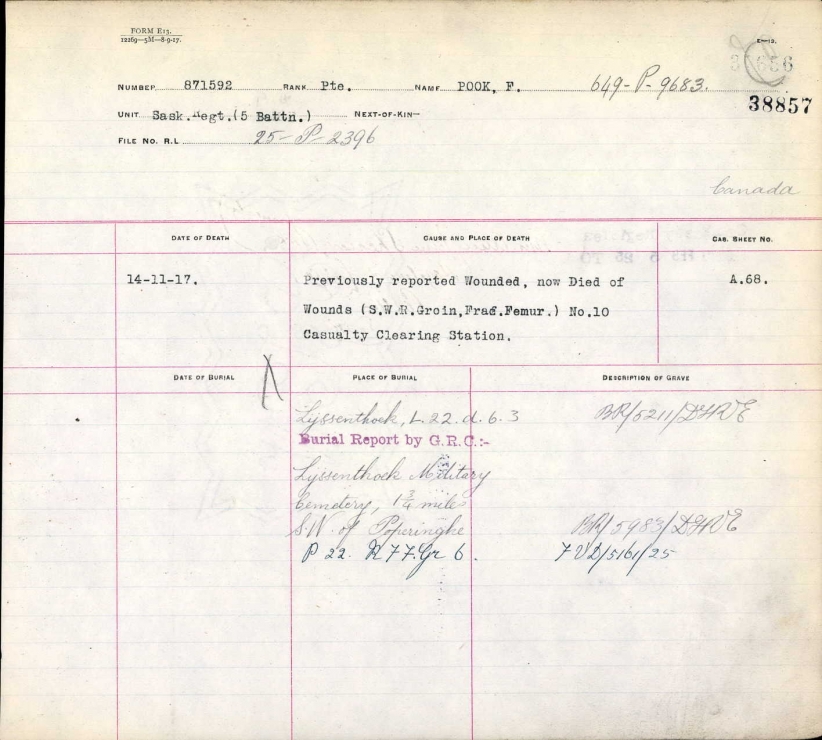 FORM E13.
12269—5M—8-9-17.
E—13.
NUMBER 871592 RANK Pte. NAME POOK, F. 649-P-9683.
38857
UNIT Sask.Regt.(5 Battn.) NEXT-OF-KIN—
FILE NO. R.L. 25-P-2396
Canada
DATE OF DEATH CAUSE AND PLACE OF DEATH CAS. SHEET NO.
14-11-17. Previously reported Wounded, now Died of A.68.
Wounds (S.W.R.Groin,Frac.Femur.) No.10
Casualty Clearing Station.
DATE OF BURIAL PLACE OF BURIAL DESCRIPTION OF GRAVE
Lyssenthoek, L.22.d.6.3 BR/5211/DGRVE
Burial Report by G.R.C:-
Lyssenthoek Military
Cemetery, 1¾ miles
S.W. of Poperinghe BR/5983/DGRVE
P 22. R 77. Gr 6. 7VD/5161/25